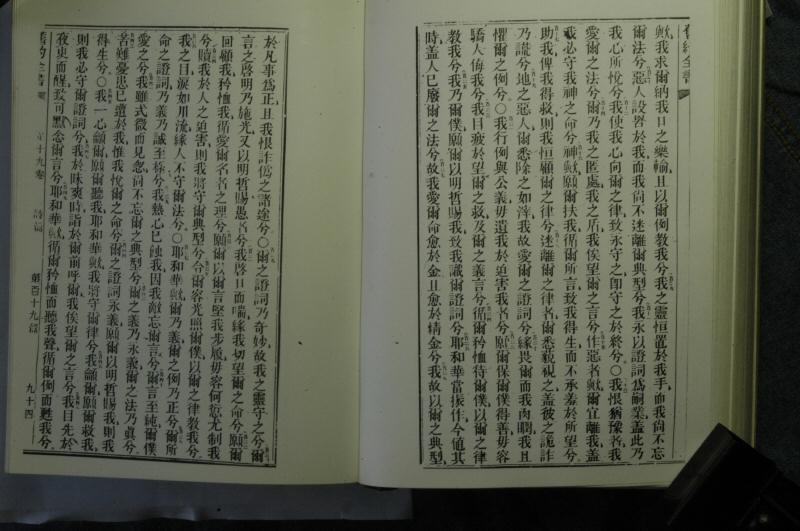 舊約全書
歟我求爾納我口之樂輸且以爾例教我兮我之靈恒置於我手而我尙不忘
爾法兮惡人設罟於我而我尙不迷離爾典型兮我永以證詞爲嗣業蓋此乃
我心所悅兮我使我心向爾之律致永守之卽守之於終兮〇我恨猶豫者我
愛爾之法兮爾乃我之匿處我之盾我俟望爾之言兮作惡者歟爾宜離我蓋
我必守我神之命兮神歟願爾扶我循爾所言致我得生而不承羞於所望兮
助我俾我得救則我恒顧爾之律兮迷離爾之律者爾悉藐視之蓋彼之詭詐
乃謊兮地之惡人爾悉除之如滓我故愛爾之證詞兮緣畏爾而我肉𨶹我且
懼爾之例兮〇我行例與公義毋遺我於迫害我者兮願爾保爾僕得善毋容
驕人侮我兮我目疲於望爾之救及爾之義言兮循爾矜恤待爾僕以爾之律
教我兮我乃爾僕願爾以明哲賜我致我識爾證詞兮耶和華當振作今値其
時蓋人已廢爾之法兮故我愛爾命愈於金且愈於精金兮我故以爾之典型
於凡事爲正且我恨詐僞之諸途兮〇爾之證詞乃奇妙故我之靈守之兮爾
言之啓明乃施光又以明哲賜愚者兮我啓口而喘緣我切望爾之命兮願爾
回顧我矜恤我循愛爾名者之理兮願爾以爾言堅我步履毋容何愆尤制我
兮贖我於人之迫害則我將守爾典型兮令爾容光照爾僕以爾之律教我兮
我之目淚如川流緣人不守爾法兮〇耶和華歟爾乃義爾之例乃正兮爾所
命之證詞乃義乃誠至極兮我熱心已蝕我因我敵忘爾言兮爾言至純爾僕
愛之兮我雖式微而見忽尙不忘爾之典型兮爾之義乃永義爾之法乃眞兮
苦難憂患已遭於我惟我悅爾之命兮爾之證詞永義願爾以明哲賜我則我
得生兮〇我一心籲爾願爾聽我耶和華歟我將守爾律兮我籲爾願爾救我
則我必守爾證詞兮我於昧爽時詣於爾前呼爾我俟望爾之言兮我目先於
夜更而醒致可默念爾言兮耶和華歟循爾矜恤而聽我聲循爾例而甦我兮
舊約全書 第十九卷 詩篇 第百十九篇 九十四